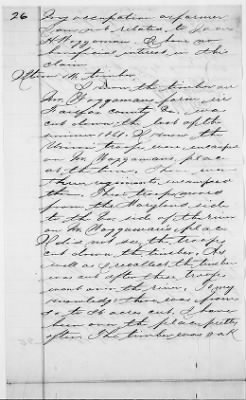 26 My occupation a farmer
I am not related to James
H. Waggaman. I have no
beneficial interest in this
claim.
Item 1st timber
I know the timber on
Mr. Waggamans farm in
Fairfax county Va. was
cut down the last of the
summer 1861. I know the
Union troops were encamped
on Mr. Waggamans place
at the time. There were
three regiments encamped
there. That troops moved
from the Maryland side
to the Va side of the river
on Mr. Waggamans place.
I did not see the troops
cut down the timber. As
well as I recollect the timber
was cut after these troops
went over the river. In my
knowledge there was from
30 to 40 acres cut. I have
been over the place pretty
often. The timber was oak